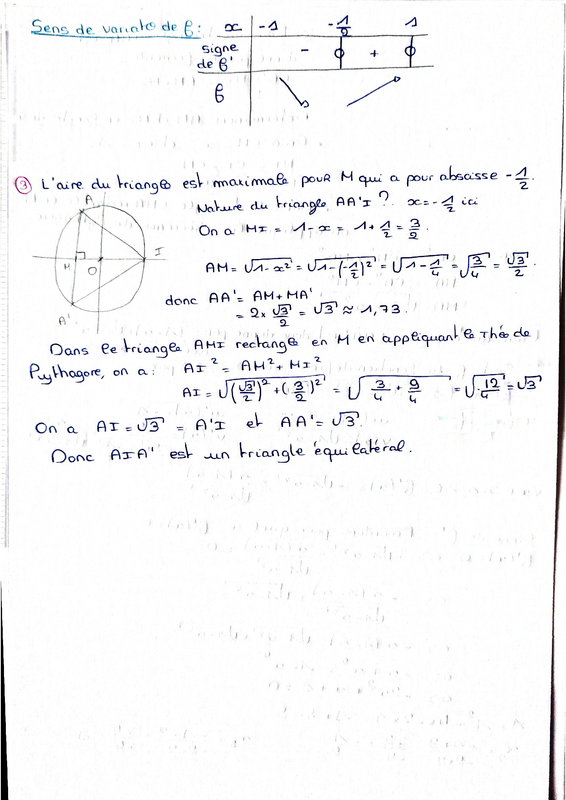 Sens de variat° de f :
x -1 -1/2 1
signe de f' - 0 + 0
f
③ L'aire du triangle est maximale pour M qui a pour abscisse -1/2.
A
I
M
O
A'
Nature du triangle AA'I ? x = -1/2 ici
On a MI = 1-x = 1+1/2 = 3/2.
AM = √(1-x²) = √(1-(-1/2)²) = √(1-1/4) = √(3/4) = √3/2.
donc AA' = AM + MA'
= 2 × √3/2 = √3 ≈ 1,73.
Dans le triangle AMI rectangle en M en appliquant le Théo de
Pythagore, on a : AI² = AM² + MI²
AI = √((√3/2)² + (3/2)²) = √(3/4 + 9/4) = √(12/4) = √3
On a AI = √3 = A'I et AA' = √3.
Donc AIA' est un triangle équilatéral.